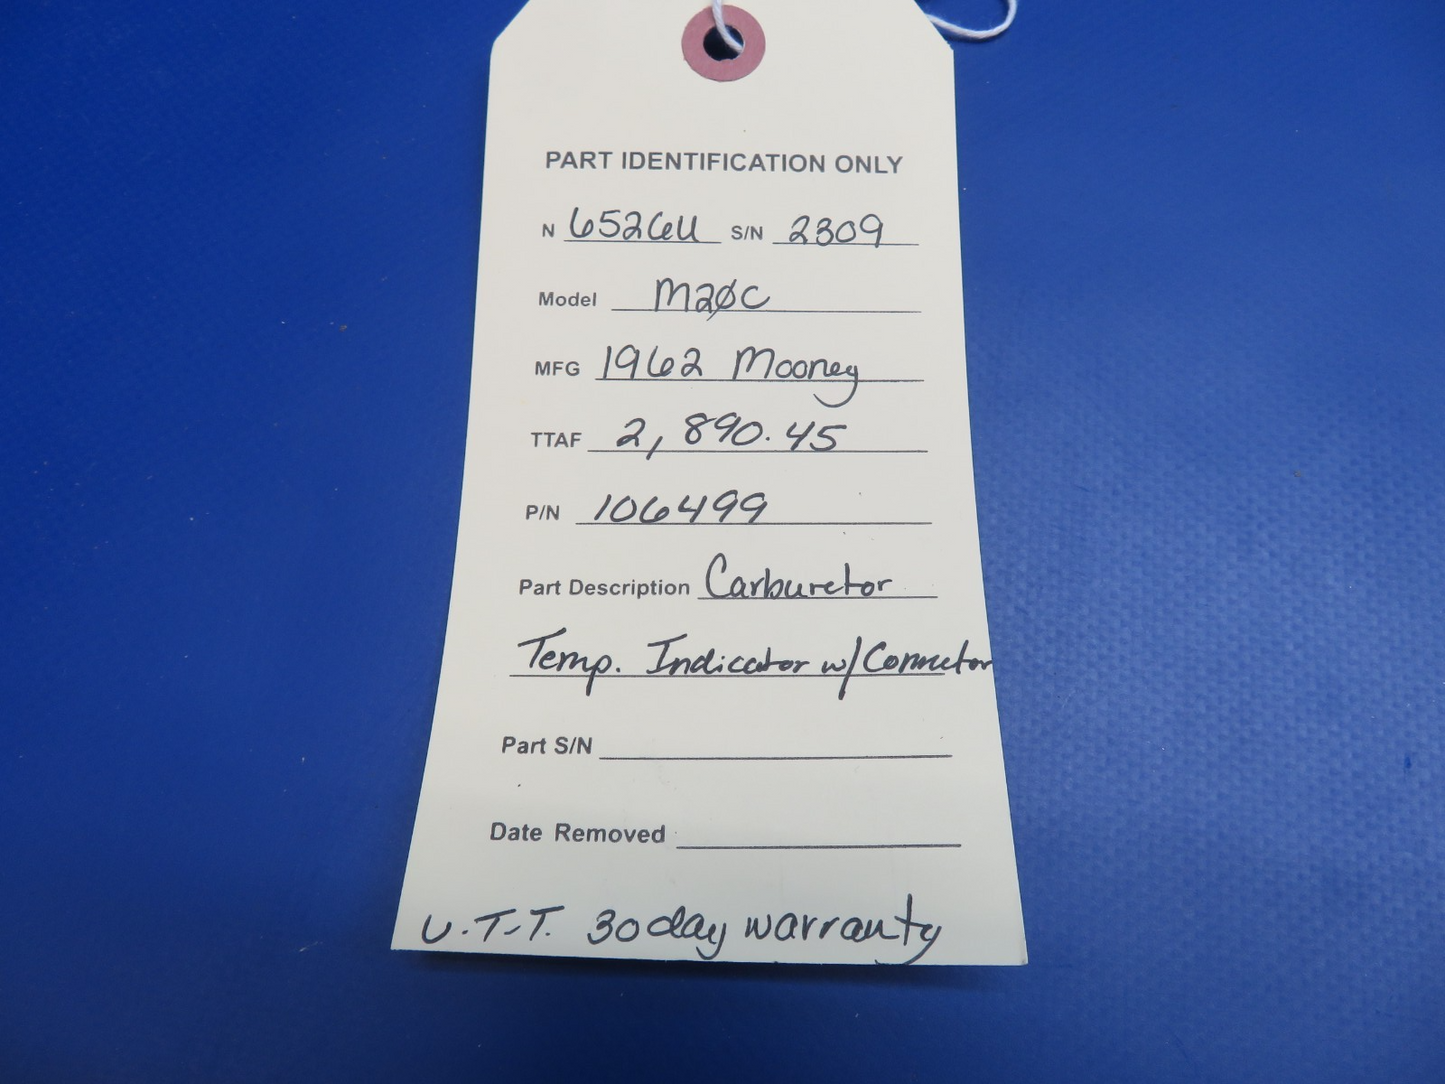 PART IDENTIFICATION ONLY
N 6526U S/N 2309
Model M20C
MFG 1962 Mooney
TTAF 2,890.45
P/N 106499
Part Description Carburetor
Temp. Indicator w/Connector
Part S/N
Date Removed
U.T.T. 30 day warranty